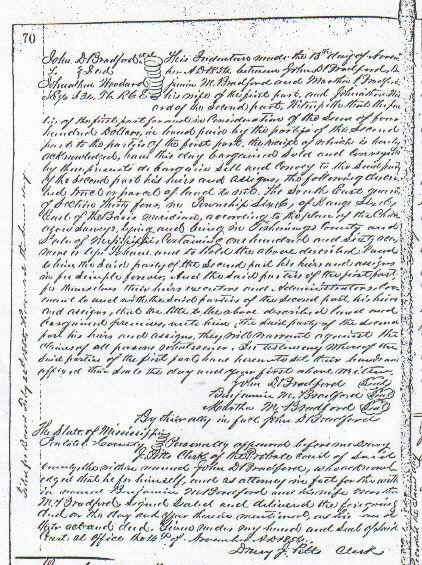 70
John D Bradford et al This Indenture made the 13th day of Novem
To Deed ber AD 1854 between John D Bradford, Ben
Johnathan Woodard jamin M. Bradford and Martha M Bradford
S34 T6 R6 E his wife of the first part, and Johnathan Wo
ard of the Second part, Witnesseth that the
of the first part for and in Consideration of the Sum of four
hundred Dollars, in hand paid by the parties of the Second
part to the parties of the first part, the receipt of which is hereby
acknowledged, have this day bargained Sold and Conveyed
by these presents do bargain Sell and Convey to the Said party
of the Second part his heirs and assigns, the following descri
bed tract or parcel of land to wit. The South East quarter
of Section Thirty four, in Township Six, of Range Six,
East of the Basis meridian, according to the plan of the Chick
asaw Surveys, lying and being in Tishomingo County and
State of Mississippi, Containing one hundred and Sixty acres
more or less To have and to Hold the above described Land
to him the Said party of the Second part his heirs and assigns
in fee Simple forever. And the Said parties of the first part
for themselves their heirs executors and Administrators Cov
enant to and with the Said parties of the Second part his heirs
and assigns, that the title to the above described land and
bargained premises, unto him the Said party of the Second
part his heirs and assigns, they will warrant against the
Claims of all persons whatsoever. In testimony whereof the
Said parties of the first part, have hereunto Set their hands an
affixed their Seals the day and year first above written
John D Bradford Seal
Benjamin M. Bradford Seal
Martha M. Bradford Seal
By their atty in fact John D Bradford
The State of Mississippi
Pontotoc County Personally appeared before me
J Pitts Clerk of the Probate Court of Said
County the within named John D Bradford, who acknowl
edged that he for himself, and as attorney in fact for the with
in named Benjamin M. Bradford and his wife Martha
M. Bradford Signed Sealed and delivered the foregoing
deed on the day and year therein mentioned, as
act and deed. Given under my hand and Seal of Said
Court at Office the of November AD 1854.
J. Pitts Clerk